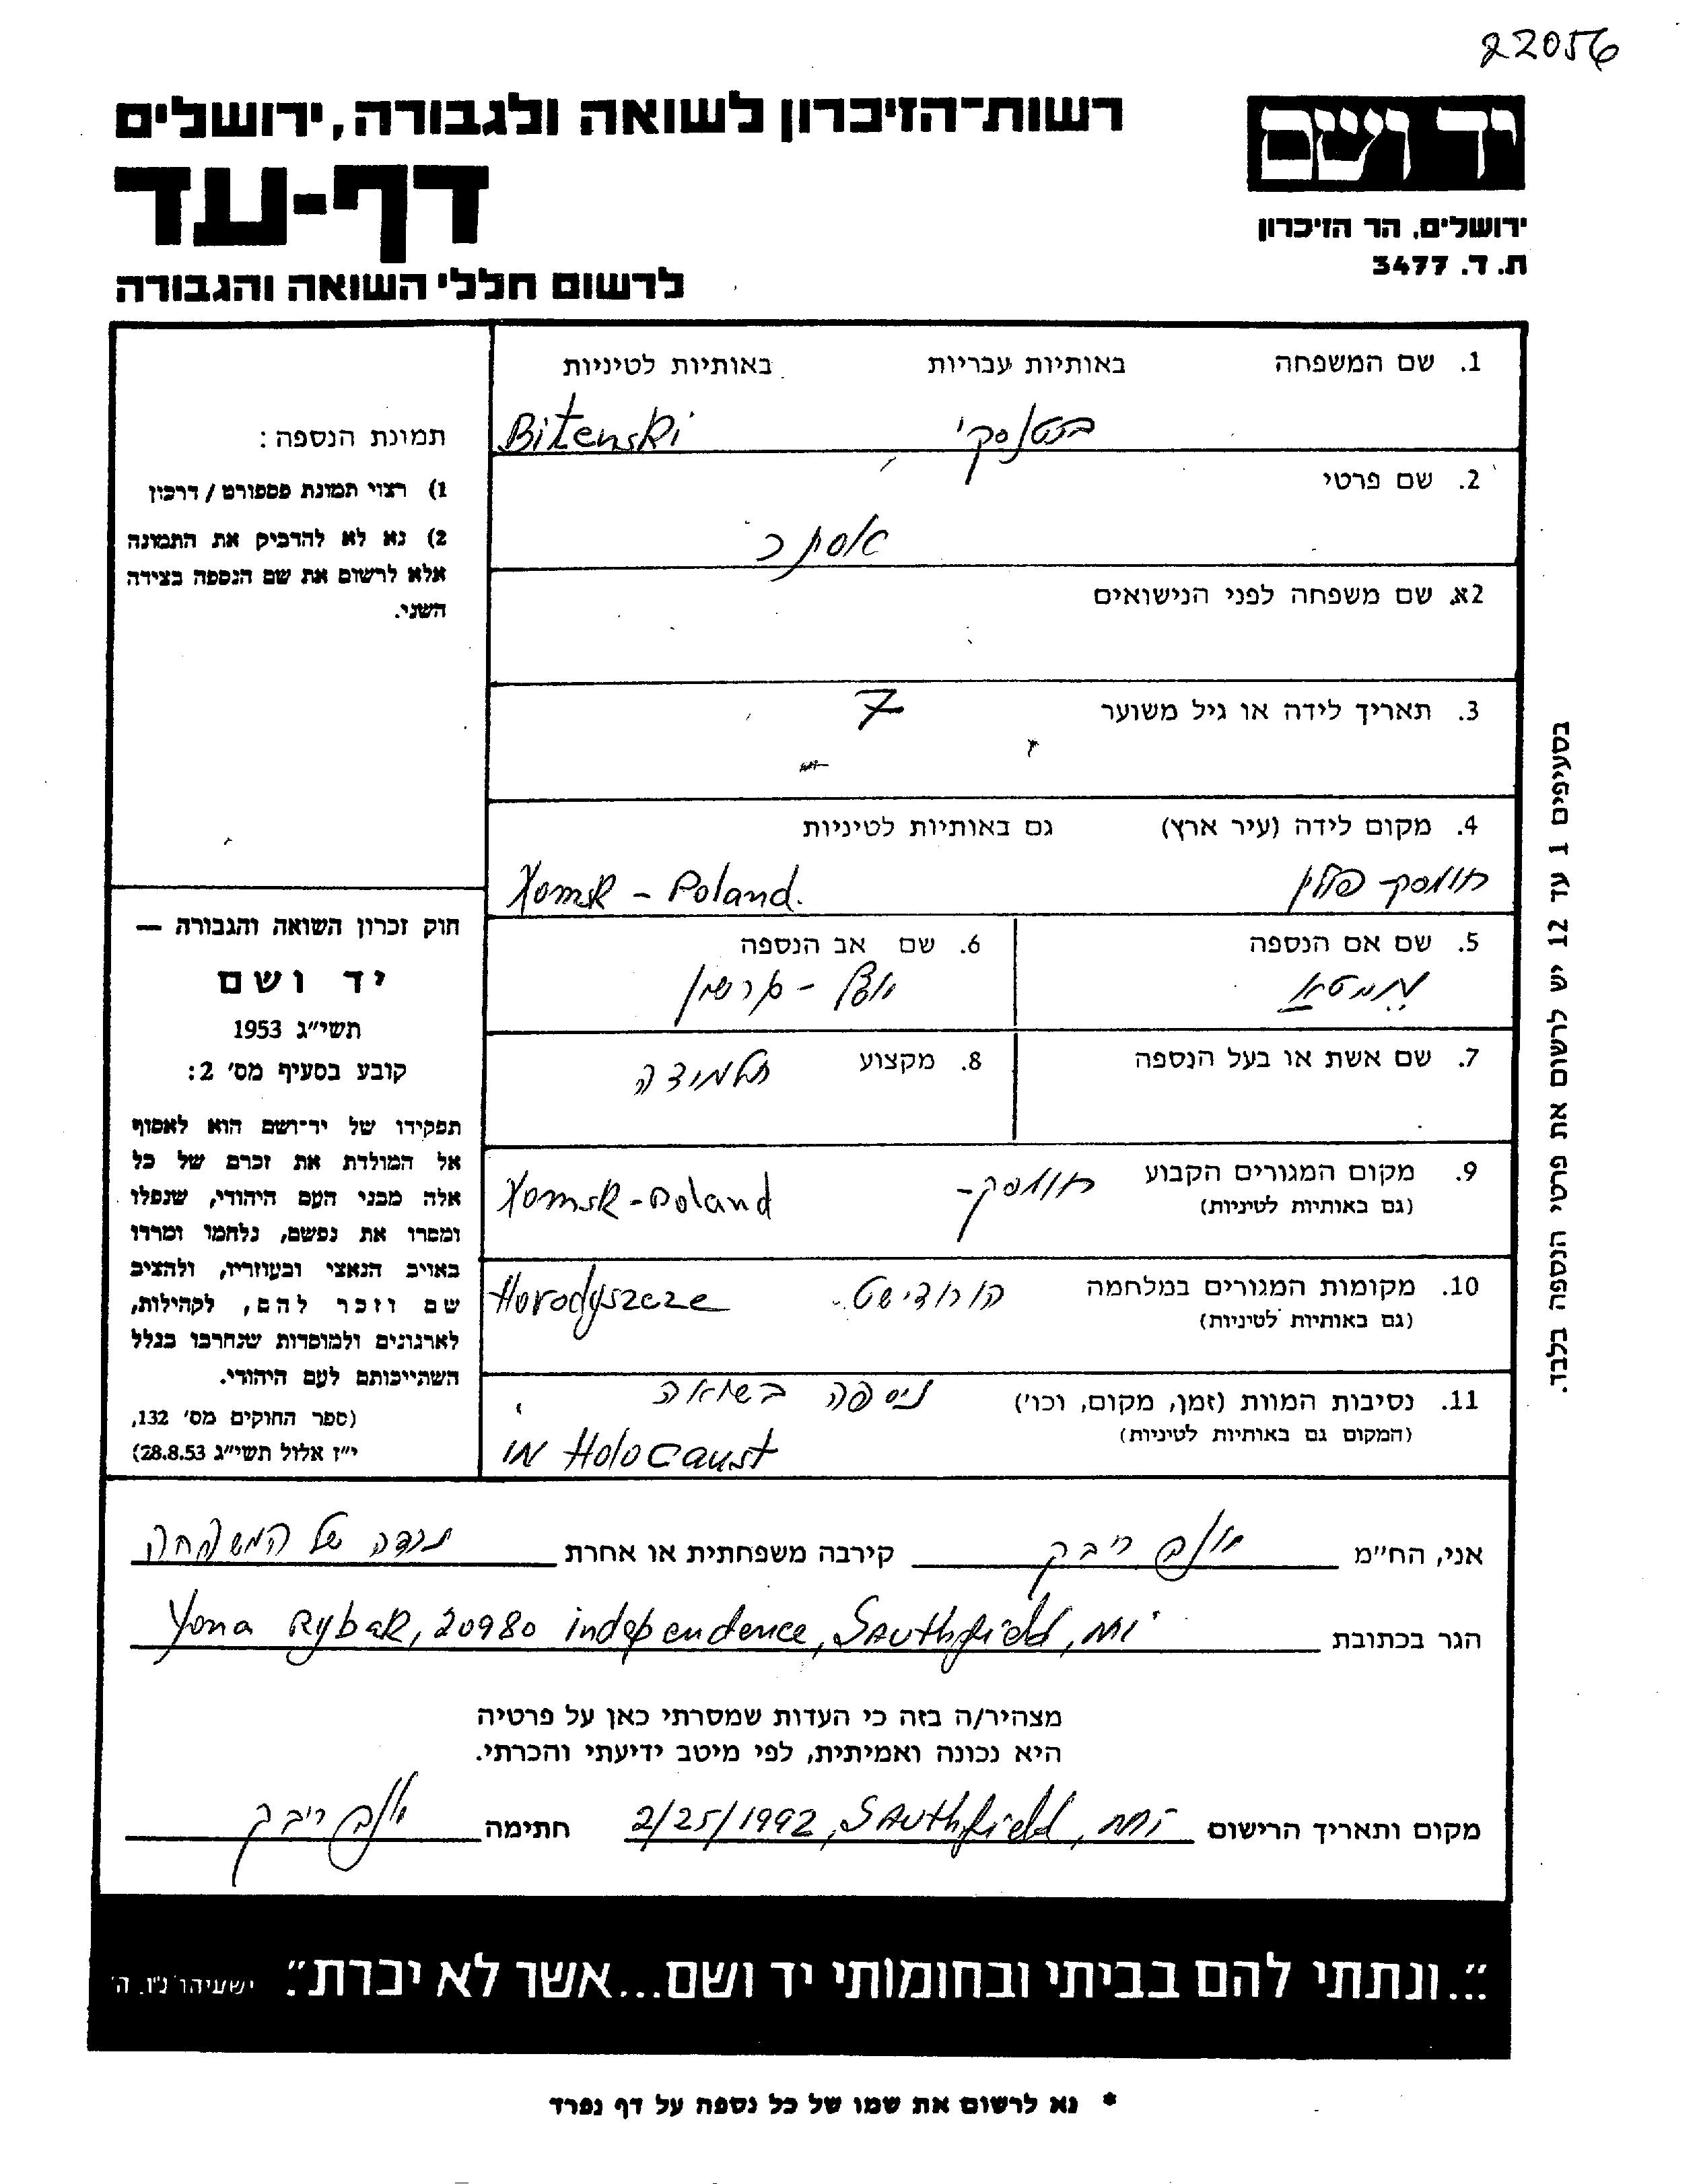 22056
רשות־הזיכרון לשואה ולגבורה, ירושלים
דף-עד
לרשום חללי השואה והגבורה
יד ושם
ירושלים, הר הזיכרון
ת. ד. 3477
1. שם המשפחה באותיות עבריות באותיות לטיניות
ביטנסקי Bitenski
2. שם פרטי
אסתר
2א. שם משפחה לפני הנישואים
3. תאריך לידה או גיל משוער
7
4. מקום לידה (עיר ארץ) גם באותיות לטיניות
חומסק - פולין Xomsk - Poland.
5. שם אם הנספה
6. שם אב הנספה
גרשון
7. שם אשת או בעל הנספה
8. מקצוע תלמידה
9. מקום המגורים הקבוע חומסק- Xomsk - Poland
(גם באותיות לטיניות)
10. מקומות המגורים במלחמה הורודישט Horodyszcze
(גם באותיות לטיניות)
11. נסיבות המוות (זמן, מקום, וכו') ניספה בשואה
(המקום גם באותיות לטיניות) IN Holocaust
תמונת הנספה:
1) רצוי תמונת פספורט / דרכון
2) נא לא להדביק את התמונה
אלא לרשום את שם הנספה בצידה
השני.
חוק זכרון השואה והגבורה —
יד ושם
תשי"ג 1953
קובע בסעיף מס' 2:
תפקידו של יד־ושם הוא לאסוף
אל המולדת את זכרם של כל
אלה מבני העם היהודי, שנפלו
ומסרו את נפשם, נלחמו ומרדו
באויב הנאצי ובעוזריו, ולהציב
שם וזכר להם, לקהילות,
לארגונים ולמוסדות שנחרבו בגלל
השתייכותם לעם היהודי.
(ספר החוקים מס' 132,
י"ז אלול תשי"ג 28.8.53)
בסעיפים 1 עד 12 יש לרשום את פרטי הנספה בלבד.
אני, הח"מ יונה ריבק קירבה משפחתית או אחרת נכדה של המשפחה
הגר בכתובת Yona Rybak, 20980 independence, Southfield, Mi
מצהיר/ה בזה כי העדות שמסרתי כאן על פרטיה
היא נכונה ואמיתית, לפי מיטב ידיעתי והכרתי.
מקום ותאריך הרישום 2/25/1992, Southfield, Mi חתימה יונה ריבק
"...ונתתי להם בביתי ובחומותי יד ושם...אשר לא יכרת". ישעיהו נ"ו, ה'
* נא לרשום את שמו של כל נספה על דף נפרד